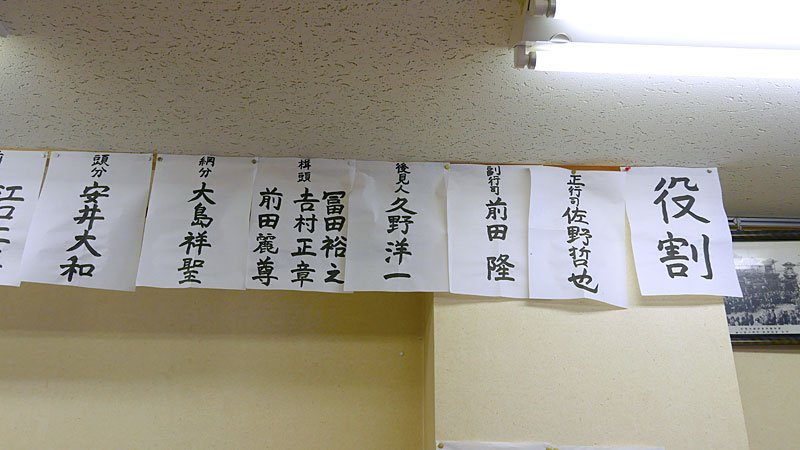 役割
正行司
佐野哲也
副行司
前田隆
後見人
久野洋一
楫頭
冨田裕之
吉村正章
前田麗尊
綱分
大島祥聖
頭分
安井大和